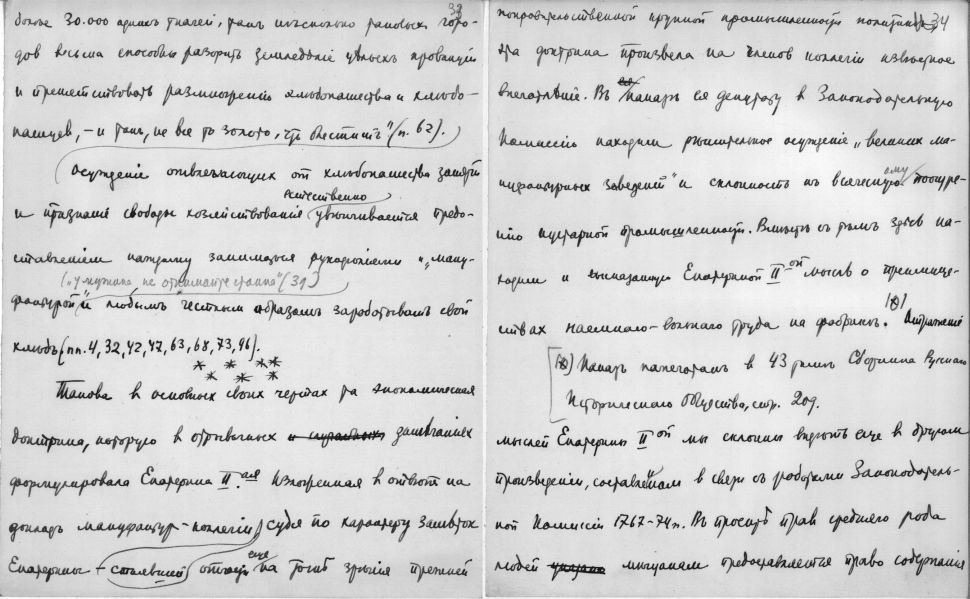 33
более 30.000 одних ткачей, там несколько таковых горо-
дов весьма способны разорить земледѣлие целых провинций
и препятствовать размножению хлѣбопашества и хлѣбо-
пашцев, – и так, не все то золото, что блестит" (п. 62).
Осуждение отвлекающих от хлѣбопашества занятий
естественно
и признание свободы хозяйствования увѣнчивается предо-
ставлением каждому заниматься рукодѣлием и „ману-
(„у мужика не отнимайте станка" (31)
фактурой" и любым честным образом зарабатывать свой
хлѣбъ (пп. 4, 32, 42, 47, 63, 68, 73, 96).
* * * *
* * *
Такова в основных своих чертах та экономическая
доктрина, которую в отрывочных замѣчаниях
формулировала Екатерина II.ая Изложенная в отвѣт на
доклад мануфактур-коллегии, судя по характеру замѣток
Екатерины – стоявшей еще на точкѣ зрѣния прежней
34
покровительственной крупной промышленности политики,
эта доктрина произвела на членов коллегии извѣстное
впечатлѣние. Въ наказѣ ея депутату в Законодательную
Комиссию находим рѣшительное осуждение „великих ма-
нуфактурных заведений" и склонность къ всяческому поощре-
нию кустарной промышленности. Вмѣстѣ съ тѣмъ здѣсь на-
ходим и высказанную Екатериной II-ой мысль о преимуще-
ствах наемного-вольного труда на фабриках. (*) Отражение
(*) Наказ напечатан в 43 томѣ Сборника Русского
Исторического Общества, стр. 209.
мыслей Екатерины II ой мы склонны видѣть еще в другом
произведении, составленном в связи съ работами Законодатель-
ной Комиссии 1767-74 г. Въ проектѣ прав среднего рода
людей мещанам предоставляется право содержания